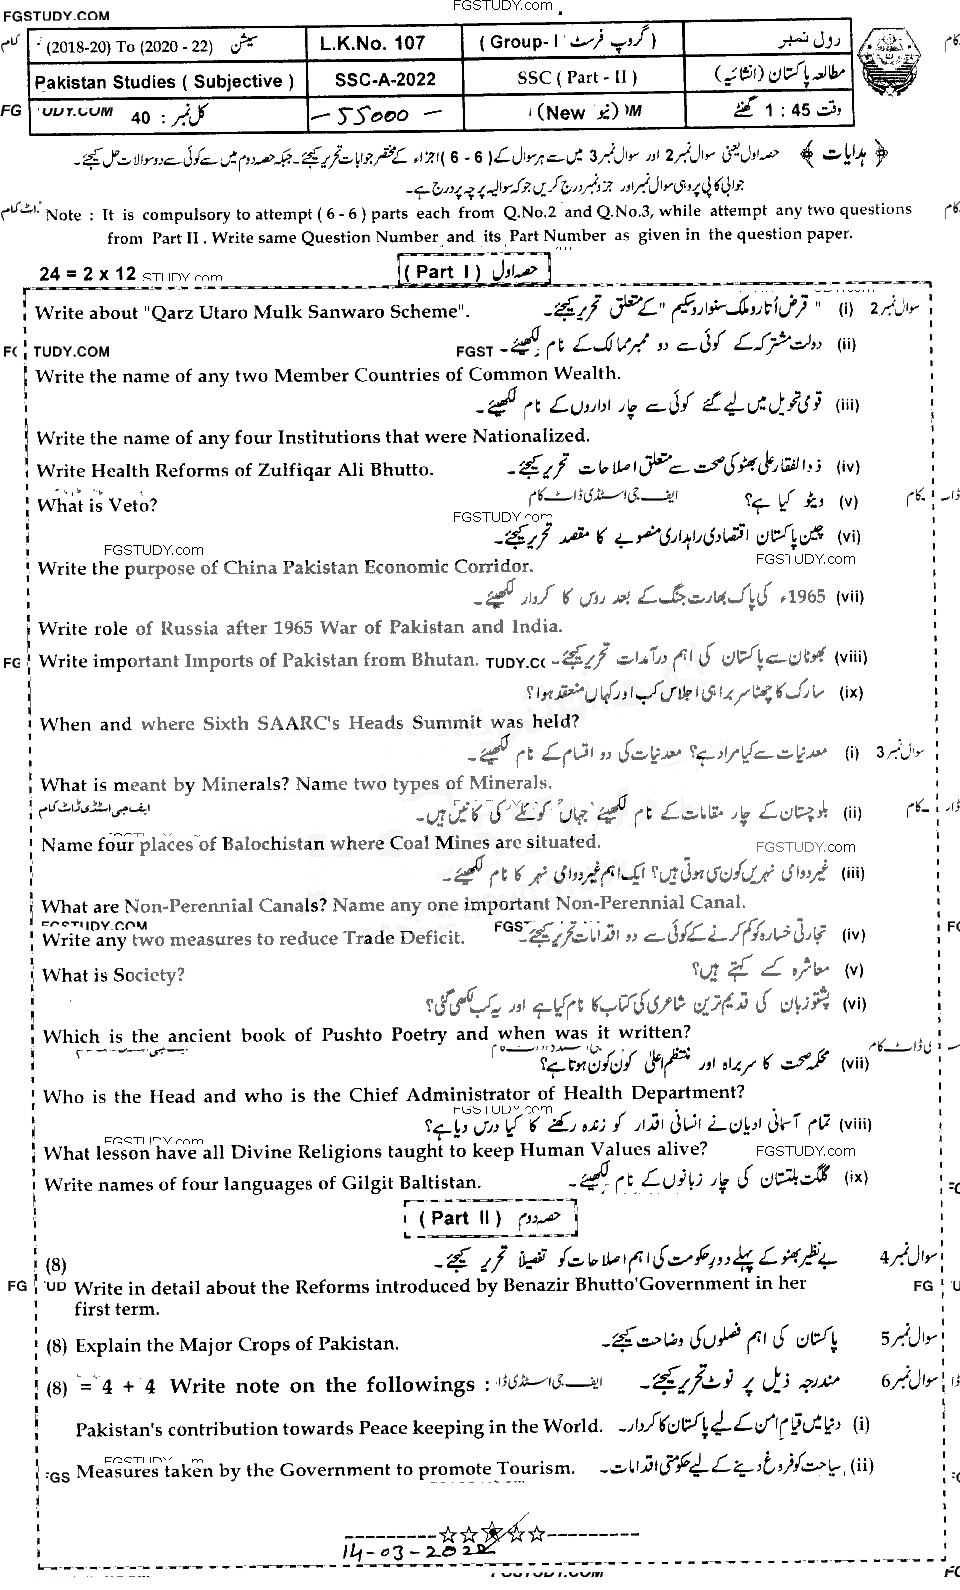 FGSTUDY.com
FGSTUDY.COM
(2018-20) To (2020 - 22) سیشن
L.K.No. 107
(Group- I گروپ فرسٹ)
رول نمبر
Pakistan Studies ( Subjective )
SSC-A-2022
SSC ( Part - II )
مطالعہ پاکستان (انشائیہ)
کل نمبر : 40
— 55000 —
(New نیو)
وقت 1 : 45 گھنٹے
﴿ ہدایات ﴾ حصہ اول یعنی سوال نمبر 2 اور سوال نمبر 3 میں سے ہر سوال کے (6 - 6) اجزاء کے مختصر جوابات تحریر کیجئے۔ جبکہ حصہ دوم میں سے کوئی سے دو سوالات حل کیجئے۔
جوابی کاپی پر وہی سوال نمبر اور جزو نمبر درج کریں جو کہ سوالیہ پرچہ پر درج ہے۔
Note : It is compulsory to attempt ( 6 - 6 ) parts each from Q.No.2 and Q.No.3, while attempt any two questions
from Part II . Write same Question Number and its Part Number as given in the question paper.
24 = 2 x 12 STUDY.com (Part I) حصہ اول
سوال نمبر 2 (i) "قرض اُتارو ملک سنوارو سکیم" کے متعلق تحریر کیجئے۔
Write about "Qarz Utaro Mulk Sanwaro Scheme".
(ii) دولت مشترکہ کے کوئی سے دو ممبر ممالک کے نام لکھیئے۔
TUDY.COM FGST
Write the name of any two Member Countries of Common Wealth.
(iii) قومی تحویل میں لیے گئے کوئی سے چار اداروں کے نام لکھیئے۔
Write the name of any four Institutions that were Nationalized.
(iv) ذوالفقار علی بھٹو کی صحت سے متعلق اصلاحات تحریر کیجئے۔
Write Health Reforms of Zulfiqar Ali Bhutto.
(v) ویٹو کیا ہے؟
What is Veto?
ایف جی اسٹڈی ڈاٹ کام
FGSTUDY.com
(vi) چین پاکستان اقتصادی راہداری منصوبے کا مقصد تحریر کیجئے۔
FGSTUDY.com FGSTUDY.com
Write the purpose of China Pakistan Economic Corridor.
(vii) 1965ء کی پاک بھارت جنگ کے بعد روس کا کردار لکھیئے۔
Write role of Russia after 1965 War of Pakistan and India.
(viii) بھوٹان سے پاکستان کی اہم درآمدات تحریر کیجئے۔
FG Write important Imports of Pakistan from Bhutan. TUDY.C
(ix) سارک کا چھٹا سربراہی اجلاس کب اور کہاں منعقد ہوا؟
When and where Sixth SAARC's Heads Summit was held?
سوال نمبر 3 (i) معدنیات سے کیا مراد ہے؟ معدنیات کی دو اقسام کے نام لکھیئے۔
What is meant by Minerals? Name two types of Minerals.
(ii) بلوچستان کے چار مقامات کے نام لکھیئے جہاں کوئلے کی کانیں ہیں۔
ایف جی اسٹڈی ڈاٹ کام
Name four places of Balochistan where Coal Mines are situated. FGSTUDY.com
(iii) غیر دوامی نہریں کون سی ہوتی ہیں؟ ایک اہم غیر دوامی نہر کا نام لکھیئے۔
What are Non-Perennial Canals? Name any one important Non-Perennial Canal.
FGSTUDY.COM FGS
(iv) تجارتی خسارہ کو کم کرنے کے کوئی سے دو اقدامات تحریر کیجئے۔
Write any two measures to reduce Trade Deficit.
(v) معاشرہ کسے کہتے ہیں؟
What is Society?
(vi) پشتو زبان کی قدیم ترین شاعری کی کتاب کا نام کیا ہے اور یہ کب لکھی گئی؟
Which is the ancient book of Pushto Poetry and when was it written?
(vii) محکمہ صحت کا سربراہ اور منتظم اعلیٰ کون کون ہوتا ہے؟
Who is the Head and who is the Chief Administrator of Health Department?
FGSTUDY.com
(viii) تمام آسمانی ادیان نے انسانی اقدار کو زندہ رکھنے کا کیا درس دیا ہے؟
FGSTUDY.com
What lesson have all Divine Religions taught to keep Human Values alive? FGSTUDY.com
(ix) گلگت بلتستان کی چار زبانوں کے نام لکھیئے۔
Write names of four languages of Gilgit Baltistan.
(Part II) حصہ دوم
سوال نمبر 4 بے نظیر بھٹو کے پہلے دور حکومت کی اہم اصلاحات کو تفصیلاً تحریر کیجئے۔ (8)
FG UD Write in detail about the Reforms introduced by Benazir Bhutto'Government in her FG
first term.
سوال نمبر 5 پاکستان کی اہم فصلوں کی وضاحت کیجئے۔
(8) Explain the Major Crops of Pakistan.
سوال نمبر 6 مندرجہ ذیل پر نوٹ تحریر کیجئے۔
(8) = 4 + 4 Write note on the followings : ایف جی اسٹڈی ڈا
(i) دنیا میں قیام امن کے لیے پاکستان کا کردار۔
Pakistan's contribution towards Peace keeping in the World.
(ii) سیاحت کو فروغ دینے کے لیے حکومتی اقدامات۔
Measures taken by the Government to promote Tourism.
14-03-2022
FGSTUDY.COM